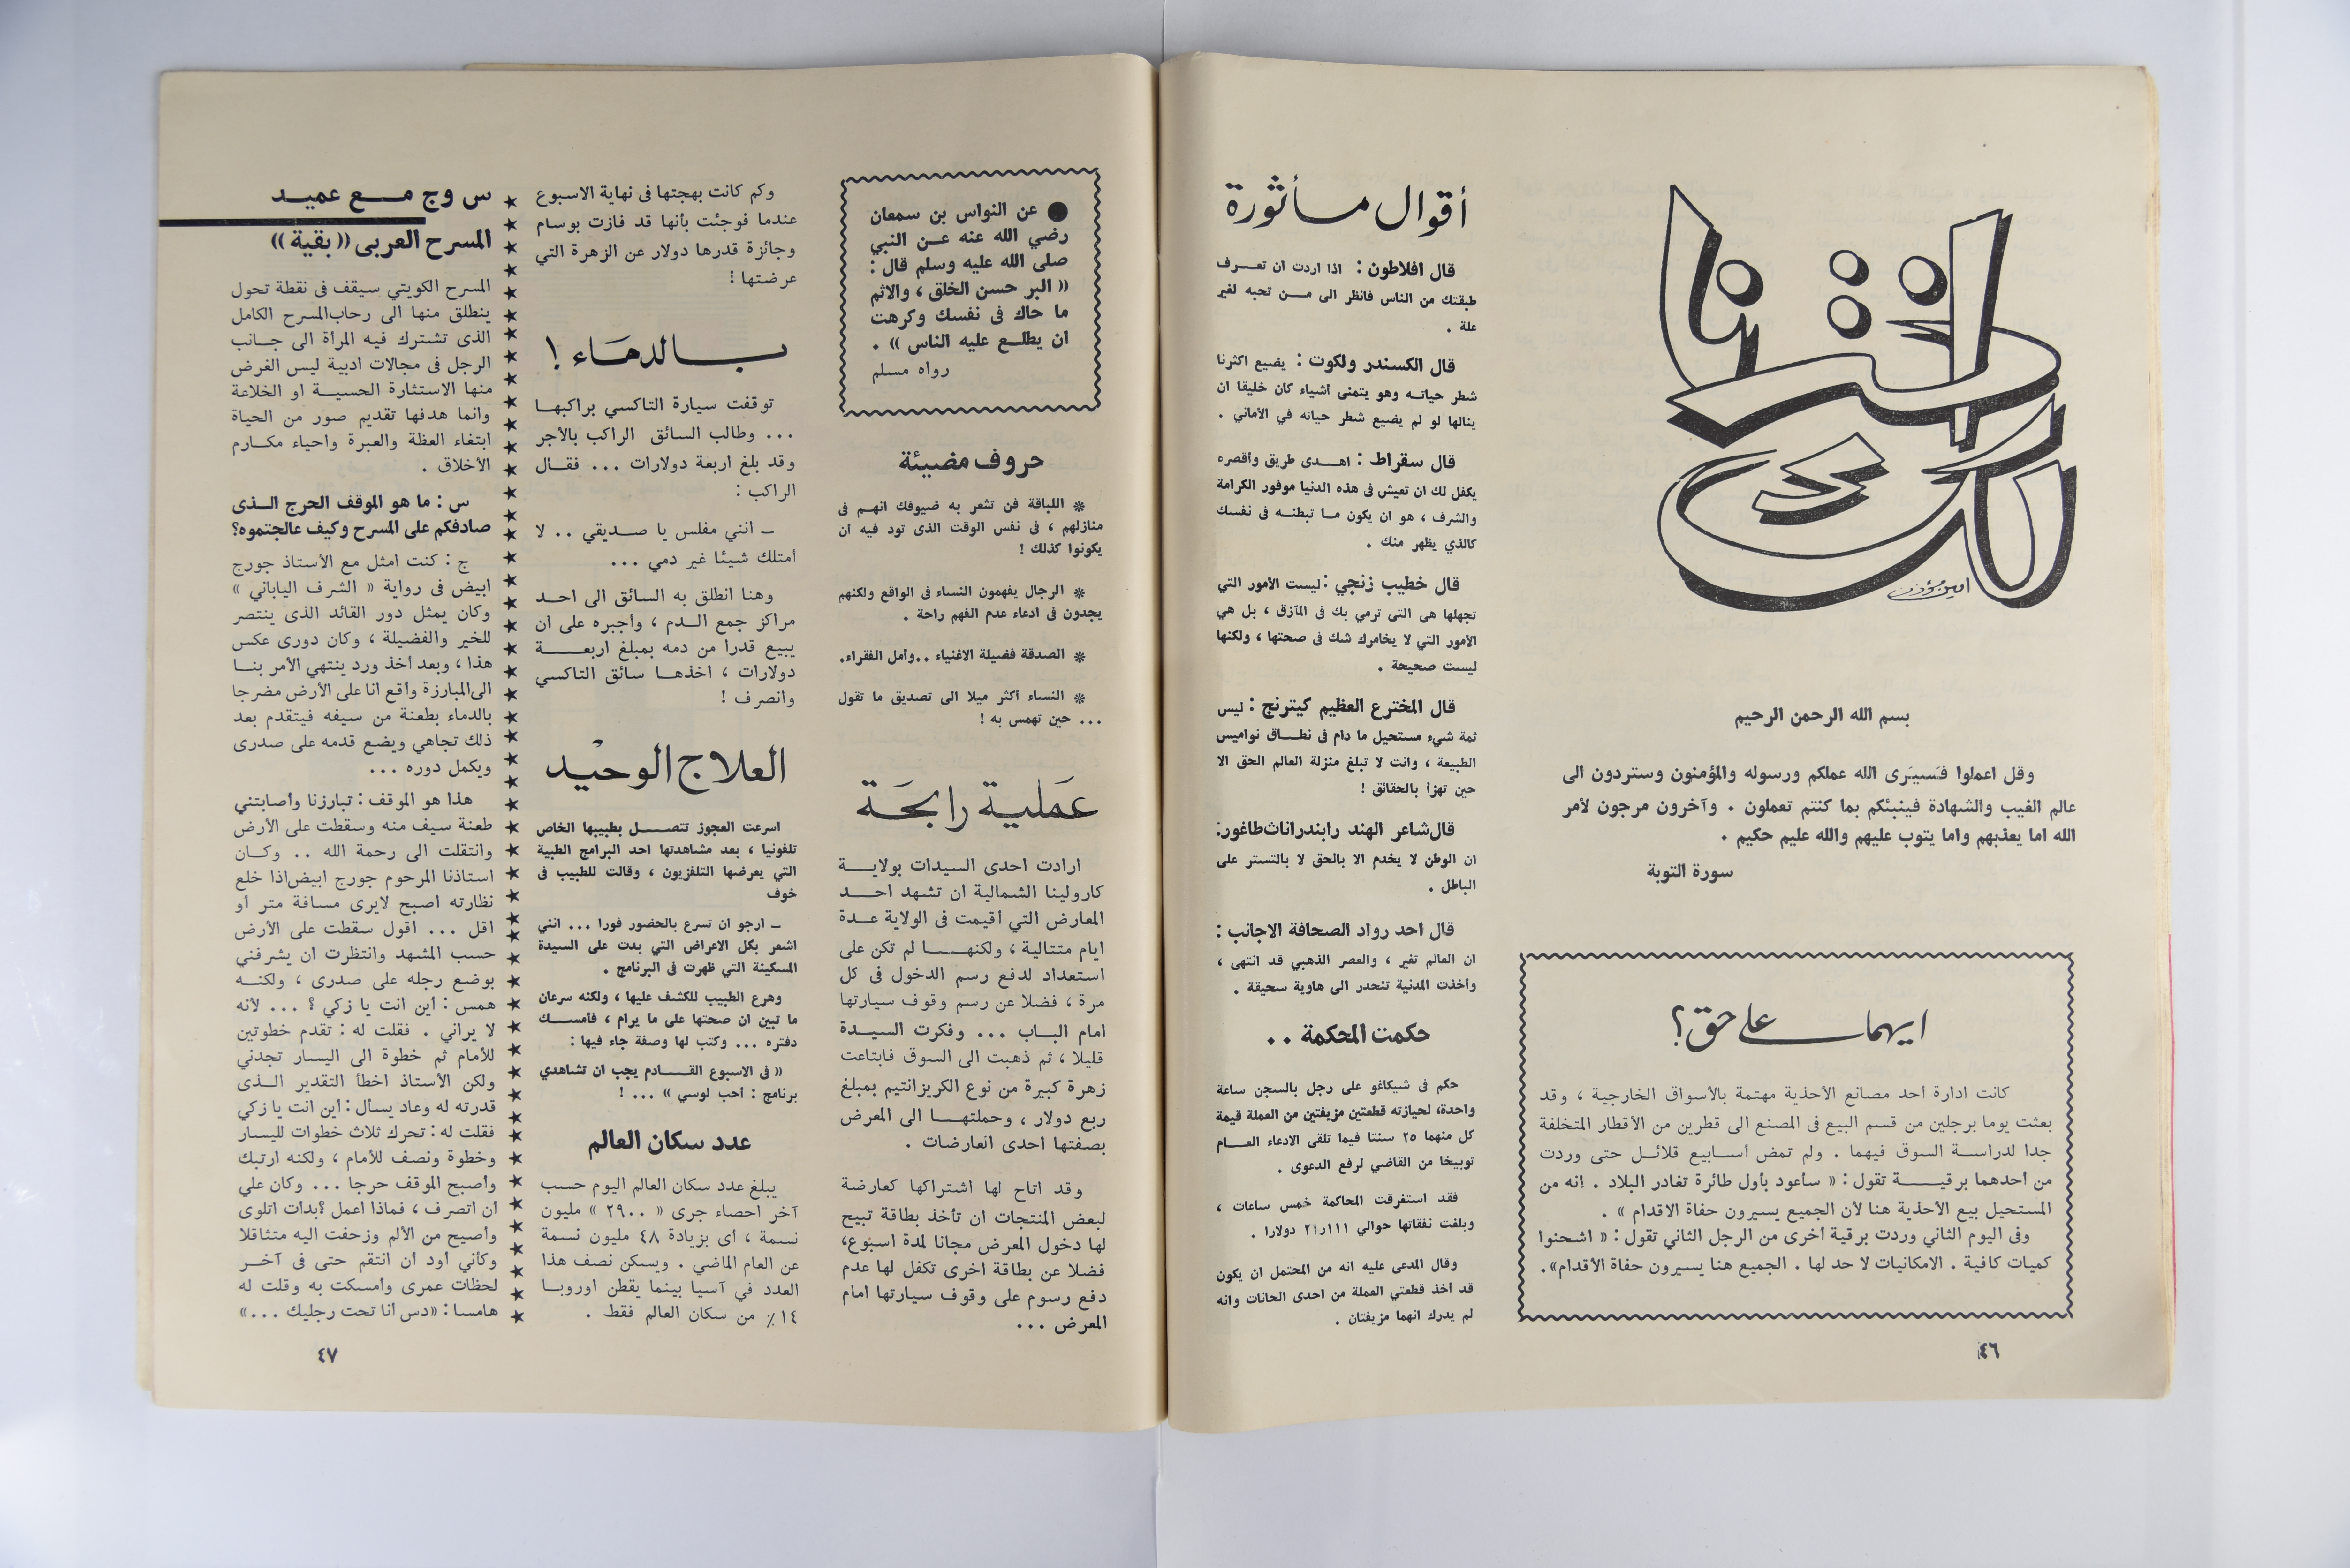 اخترنا لك
بسم الله الرحمن الرحيم
وقل اعملوا فسيَرى الله عملكم ورسوله والمؤمنون وستردون الى
عالم الغيب والشهادة فينبئكم بما كنتم تعملون . وآخرون مرجون لأمر
الله اما يعذبهم واما يتوب عليهم والله عليم حكيم .
سورة التوبة
ايهما على حق ؟
كانت ادارة احد مصانع الأحذية مهتمة بالأسواق الخارجية ، وقد
بعثت يوما برجلين من قسم البيع فى المصنع الى قطرين من الأقطار المتخلفة
جدا لدراسة السوق فيهما . ولم تمض اسابيع قلائل حتى وردت
من احدهما برقية تقول : « سأعود بأول طائرة تغادر البلاد . إنه من
المستحيل بيع الأحذية هنا لأن الجميع يسيرون حفاة الاقدام » .
وفى اليوم الثاني وردت برقية أخرى من الرجل الثاني تقول : « اشحنوا
كميات كافية . الامكانيات لا حد لها . الجميع هنا يسيرون حفاة الأقدام».
٤٦
أقوال مأثورة
قال افلاطون : اذا اردت ان تعرف
طبقتك من الناس فانظر الى من تحبه لغير
علة .
قال الكسندر ولكوت : يضيع اكثرنا
شطر حياته وهو يتمنى أشياء كان خليقا ان
ينالها لو لم يضيع شطر حياته في الأماني .
قال سقراط : اهدى طريق وأقصره
يكفل لك ان تعيش فى هذه الدنيا موفور الكرامة
والشرف ، هو ان يكون ما تبطنه فى نفسك
كالذي يظهر منك .
قال خطيب زنجي : ليست الأمور التي
تجهلها هى التى ترمي بك فى المآزق ، بل هي
الأمور التي لا يخامرك شك فى صحتها ، ولكنها
ليست صحيحة .
قال المخترع العظيم كيترنج : ليس
ثمة شيء مستحيل ما دام فى نطاق نواميس
الطبيعة ، وانت لا تبلغ منزلة العالم الحق الا
حين تهزأ بالحقائق !
قال شاعر الهند رابندراناث طاغور:
ان الوطن لا يخدم الا بالحق لا بالتستر على
الباطل .
قال احد رواد الصحافة الاجانب :
ان العالم تغير ، والعصر الذهبي قد انتهى ،
وأخذت المدنية تنحدر الى هاوية سحيقة .
حكمت المحكمة ..
حكم فى شيكاغو على رجل بالسجن ساعة
واحدة، لحيازته قطعتين مزيفتين من العملة قيمة
كل منهما ٢٥ سنتا فيما تلقى الادعاء العام
توبيخا من القاضي لرفع الدعوى .
فقد استغرقت المحاكمة خمس ساعات ،
وبلغت نفقاتها حوالي ٢١ر١١١ دولارا .
وقال المدعى عليه انه من المحتمل ان يكون
قد أخذ قطعتي العملة من احدى الحانات وانه
لم يدرك انهما مزيفتان .
● عن النواس بن سمعان
رضي الله عنه عن النبي
صلى الله عليه وسلم قال :
« البر حسن الخلق ، والاثم
ما حاك فى نفسك وكرهت
ان يطلع عليه الناس » .
رواه مسلم
حروف مضيئة
* اللباقة فن تشعر به ضيوفك انهم فى
منازلهم ، فى نفس الوقت الذى تود فيه ان
يكونوا كذلك !
* الرجال يفهمون النساء فى الواقع ولكنهم
يجدون فى ادعاء عدم الفهم راحة .
* الصدقة فضيلة الاغنياء ..وأمل الفقراء.
* النساء أكثر ميلا الى تصديق ما تقول
... حين تهمس به !
عملية رابحة
ارادت احدى السيدات بولاية
كارولينا الشمالية ان تشهد احد
المعارض التي اقيمت فى الولاية عدة
ايام متتالية ، ولكنها لم تكن على
استعداد لدفع رسم الدخول فى كل
مرة ، فضلا عن رسم وقوف سيارتها
امام الباب ... وفكرت السيدة
قليلا ، ثم ذهبت الى السوق فابتاعت
زهرة كبيرة من نوع الكريزانتيم بمبلغ
ربع دولار ، وحملتها الى المعرض
بصفتها احدى العارضات .
وقد اتاح لها اشتراكها كعارضة
لبعض المنتجات ان تأخذ بطاقة تبيح
لها دخول المعرض مجانا لمدة اسبوع،
فضلا عن بطاقة اخرى تكفل لها عدم
دفع رسوم على وقوف سيارتها امام
المعرض ...
وكم كانت بهجتها فى نهاية الاسبوع
عندما فوجئت بأنها قد فازت بوسام
وجائزة قدرها دولار عن الزهرة التي
عرضتها !
بالدماء !
توقفت سيارة التاكسي براكبها
... وطالب السائق الراكب بالأجر
وقد بلغ اربعة دولارات ... فقال
الراكب :
ـ انني مفلس يا صديقي .. لا
أمتلك شيئا غير دمي ...
وهنا انطلق به السائق الى احد
مراكز جمع الدم ، واجبره على ان
يبيع قدرا من دمه بمبلغ اربعة
دولارات ، اخذها سائق التاكسي
وانصرف !
العلاج الوحيد
اسرعت العجوز تتصل بطبيبها الخاص
تلفونيا ، بعد مشاهدتها احد البرامج الطبية
التي يعرضها التلفزيون ، وقالت للطبيب فى
خوف
ـ ارجو ان تسرع بالحضور فورا ... انني
اشعر بكل الاعراض التي بدت على السيدة
المسكينة التي ظهرت فى البرنامج .
وهرع الطبيب للكشف عليها ، ولكنه سرعان
ما تبين ان صحتها على ما يرام ، فأمسك
دفتره ... وكتب لها وصفة جاء فيها :
« فى الاسبوع القادم يجب ان تشاهدي
برنامج : أحب لوسي » ... !
عدد سكان العالم
يبلغ عدد سكان العالم اليوم حسب
آخر احصاء جرى « ٢٩٠٠ » مليون
نسمة ، أى بزيادة ٤٨ مليون نسمة
عن العام الماضي . ويسكن نصف هذا
العدد في آسيا بينما يقطن اوروبا
١٤٪ من سكان العالم فقط .
س وج مع عميد
المسرح العربى «بقية»
المسرح الكويتي سيقف فى نقطة تحول
ينطلق منها الى رحاب المسرح الكامل
الذى تشترك فيه المرأة الى جانب
الرجل فى مجالات ادبية ليس الغرض
منها الاستثارة الحسية او الخلاعة
وانما هدفها تقديم صور من الحياة
ابتغاء العظة والعبرة واحياء مكارم
الأخلاق .
س : ما هو الموقف الحرج الذى
صادفكم على المسرح وكيف عالجتموه؟
ج : كنت امثل مع الأستاذ جورج
ابيض فى رواية « الشرف الياباني »
وكان يمثل دور القائد الذى ينتصر
للخير والفضيلة ، وكان دورى عكس
هذا ، وبعد أخذ ورد ينتهي الأمر بنا
الى المبارزة وأقع انا على الأرض مضرجا
بالدماء بطعنة من سيفه فيتقدم بعد
ذلك تجاهي ويضع قدمه على صدرى
ويكمل دوره ...
هذا هو الموقف : تبارزنا وأصابتني
طعنة سيف منه وسقطت على الأرض
وانتقلت الى رحمة الله .. وكان
استاذنا المرحوم جورج ابيض اذا خلع
نظارته اصبح لايرى مسافة متر او
اقل ... اقول سقطت على الأرض
حسب المشهد وانتظرت ان يشرفني
بوضع رجله على صدرى ، ولكنه
همس : اين انت يا زكي ؟ ... لأنه
لا يراني . فقلت له : تقدم خطوتين
للأمام ثم خطوة الى اليسار تجدني
ولكن الأستاذ اخطأ التقدير الذى
قدرته له وعاد يسأل : أين انت يا زكي
فقلت له : تحرك ثلاث خطوات لليسار
وخطوة ونصف للأمام ، ولكنه ارتبك
وأصبح الموقف حرجا ... وكان علي
ان اتصرف ، فماذا اعمل ؟بدأت اتلوى
وأصيح من الألم وزحفت اليه متثاقلا
وكأني أود ان انتقم حتى فى آخر
لحظات عمرى وأمسكت به وقلت له
هامسا : «دس انا تحت رجليك ...»
٤٧